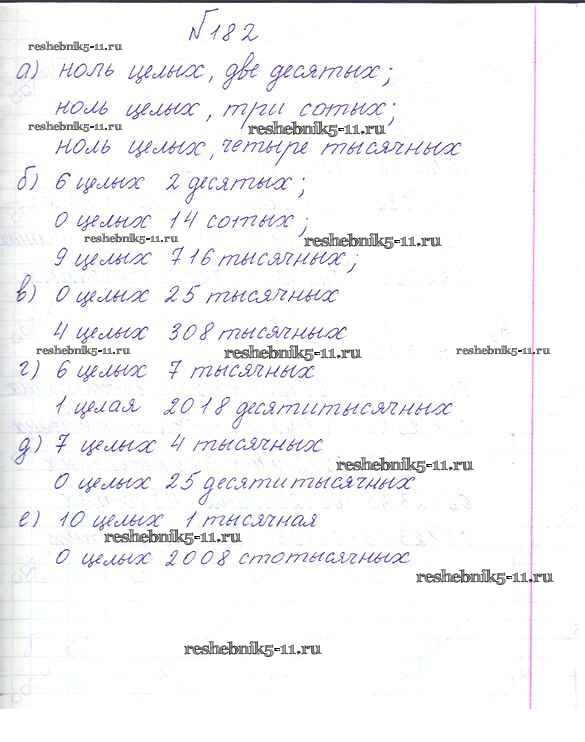 №182
reshebnik5-11.ru
а) ноль целых, две десятых;
ноль целых, три сотых;
reshebnik5-11.ru reshebnik5-11.ru
ноль целых, четыре тысячных
б) 6 целых 2 десятых;
0 целых 14 сотых;
reshebnik5-11.ru reshebnik5-11.ru
9 целых 716 тысячных;
в) 0 целых 25 тысячных
4 целых 308 тысячных
reshebnik5-11.ru reshebnik5-11.ru reshebnik5-11.ru
г) 6 целых 7 тысячных
1 целая 2018 десятитысячных
д) 7 целых 4 тысячных
reshebnik5-11.ru
0 целых 25 десятитысячных
е) 10 целых 1 тысячная
reshebnik5-11.ru
0 целых 2008 стотысячных
reshebnik5-11.ru
reshebnik5-11.ru